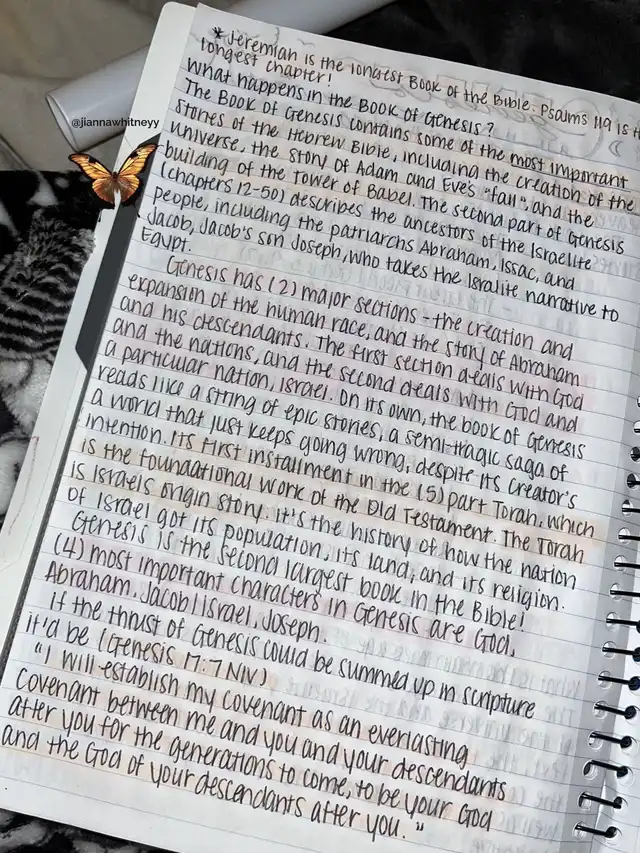 * Jeremiah is the longest Book of the Bible. Psalms 119 is
longest chapter!
What happens in the Book of Genesis?
The Book of Genesis contains some of the most important
stories of the Hebrew Bible, including the creation of the
universe, the story of Adam and Eve's "fall", and the
building of the Tower of Babel. The second part of Genesis
(chapters 12-50) describes the ancestors of the Israelite
people, including the patriarchs Abraham, Issac, and
Jacob, Jacob's son Joseph, who takes the Isralite narrative to
Egypt.
Genesis has (2) major sections - the creation and
expansion of the human race, and the story of Abraham
and his descendants. The first section deals with God
and the nations, and the second deals with God and
a particular nation, Israel. On its own, the book of Genesis
reads like a string of epic stories, a semi-tragic saga of
a world that just keeps going wrong, despite its creator's
intention. Its first installment in the (5) part Torah, which
is the foundational work of the Old Testament. The Torah
is Israels origin story. It's the history of how the nation
of Israel got its population, its land, and its religion.
Genesis is the second largest book in the Bible!
(4) most important characters in Genesis are God,
Abraham, Jacob | Israel, Joseph.
If the thrust of Genesis could be summed up in scripture
it'd be (Genesis 17:7 NIV)
"I will establish my covenant as an everlasting
covenant between me and you and your descendants
after you for the generations to come, to be your God
and the God of your descendants after you."
@jiannawhitneyy